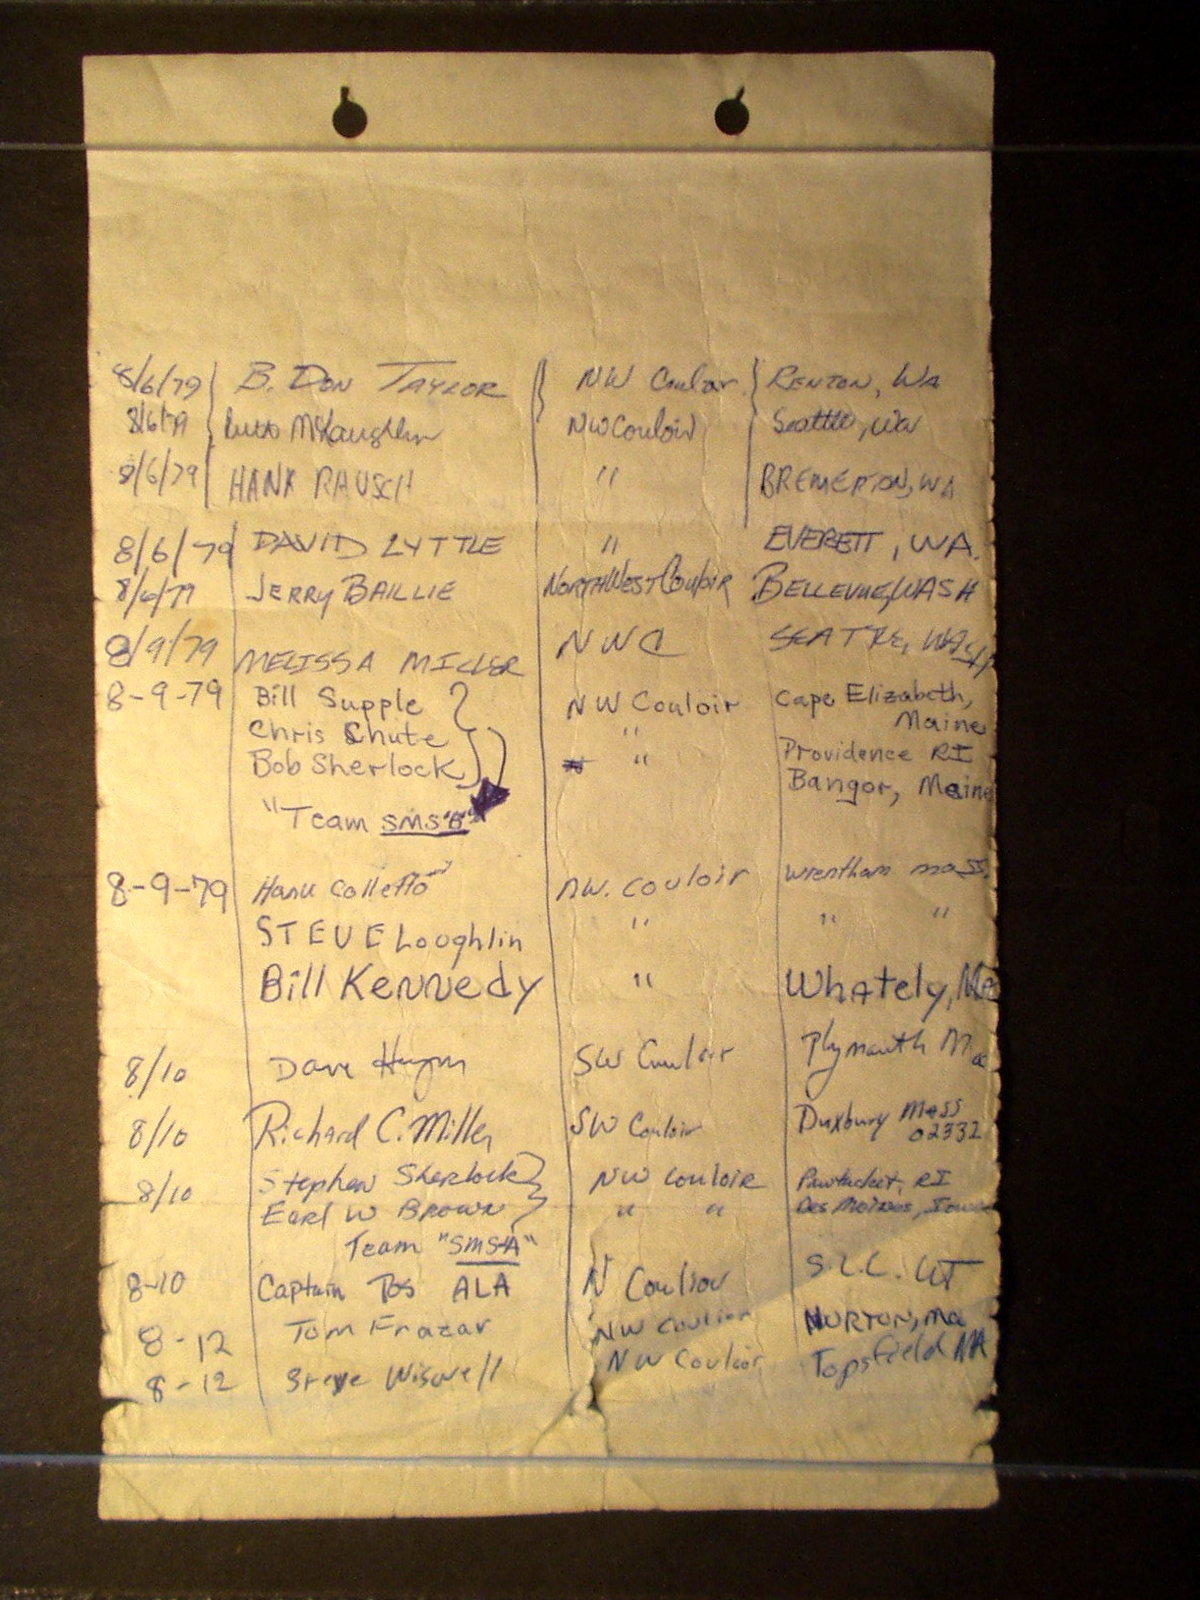 8/6/79 B. DON TAYLOR NW Coulor RENTON, WA
8/6/79 McLaughlin NW Couloir Seattle, WA
8/6/79 HANK RAUSCH " BREMERTON, WA
8/6/79 DAVID LYTTLE " EVERETT, WA.
8/6/79 JERRY BAILLIE NORTHWEST Couloir BELLEVUE, WASH
8/9/79 MELISSA MILLER NWC SEATTLE, WASH
8-9-79 Bill Supple NW Couloir Cape Elizabeth, Maine
Chris Chute " Providence RI
Bob Sherlock " Bangor, Maine
"Team SMS'B'"
8-9-79 Colletto NW. Couloir Wrentham mass.
STEVE Loughlin " " "
Bill Kennedy " Whately, Ma
8/10 Dave SW Couloir Plymouth Ma
8/10 Richard C. Miller SW Couloir Duxbury Mass 02332
8/10 Stephen Sherlock NW Couloir Pawtucket, RI
Earl W Brown " " Des Moines, Iowa
Team "SMS-A"
8-10 Captain ALA N Coulior S.L.C. UT
8-12 Tom Frazar NW Coulior NORTON, Ma
8-12 Steve Wiswell NW Couloir Topsfield MA